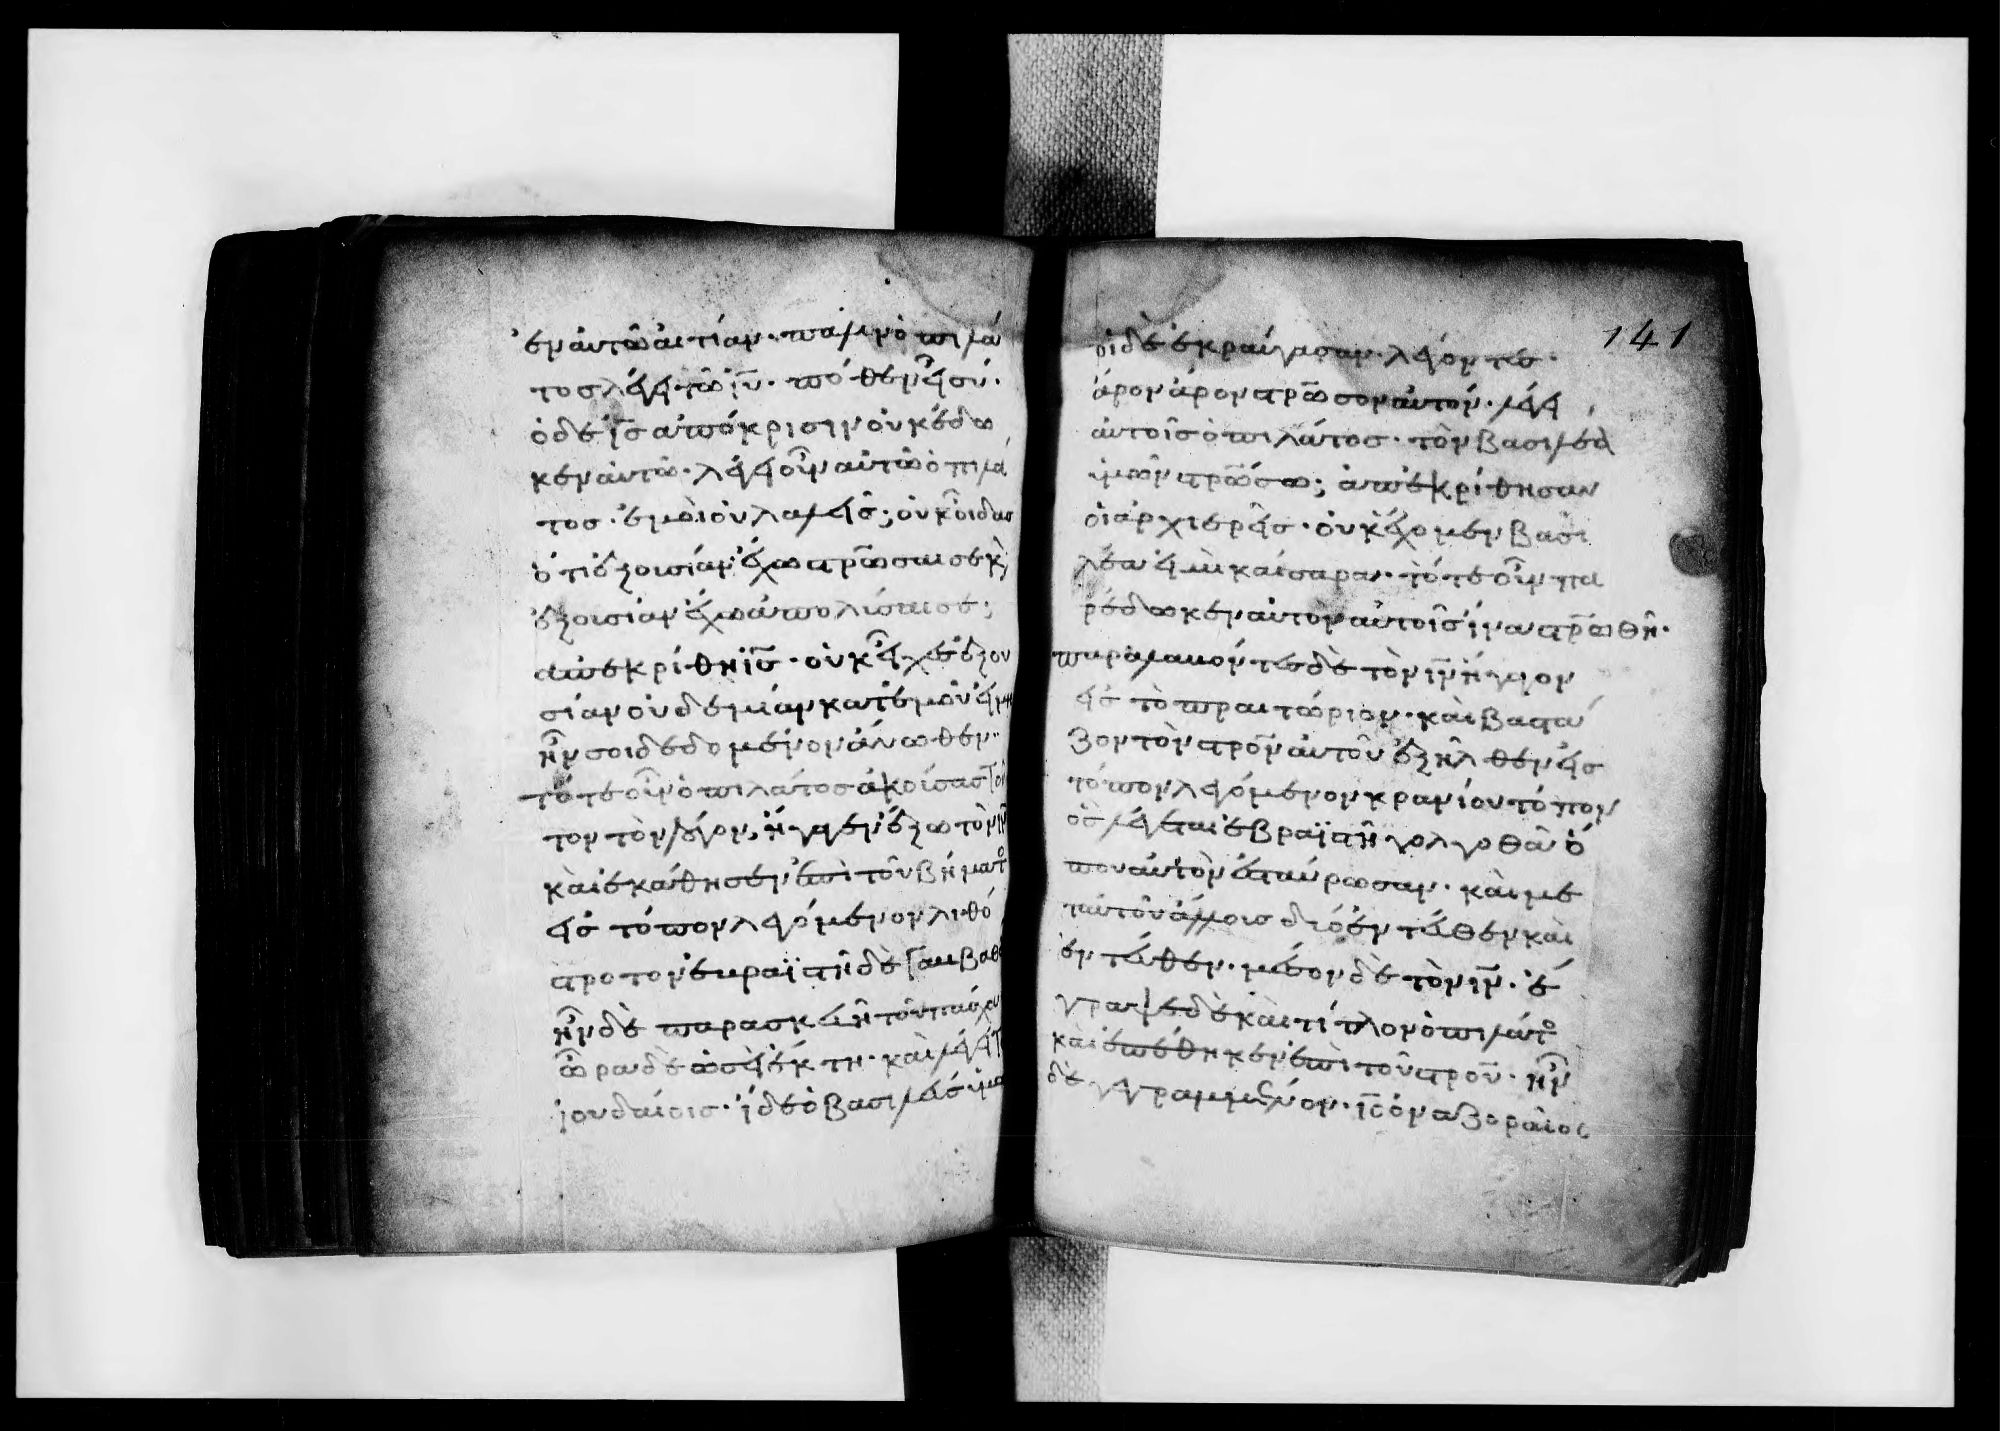 ἐν αὐτῶ αἰτίαν · πάλιν ὁ πιλά
τος λέγει τῶ ιυ · πόθεν εἶ σύ ·
ὁ δὲ ις ἀπόκρισιν οὐκ ἔδω
κεν αὐτῶ · λέγει οὖν αὐτῶ ὁ πιλά
τος · ἐμοὶ οὐ λαλεῖς; οὐκ οἶδας
ὅτι ἐξουσίαν ἔχω στρωσαι σε κ
ἐξουσίαν ἔχω ἀπολύσαι σε;
ἀπεκρίθη ις · οὐκ εἶχες ἐξου
σίαν οὐδεμίαν κατ ἐμοῦ εἰ μη
ἦν σοι δεδομένον ἄνωθεν ·
τότε οὖν ὁ πιλάτος ἀκούσας τοῦ
τον τὸν λόγον, ἤγαγεν ἔξω τὸν ιν
καὶ ἐκάθησεν ἐπὶ τοῦ βήματο
εἰς τόπον λεγόμενον λιθό
στροτον ἑβραϊστὶ δὲ γαββαθ
ἦν δὲ παρασκευὴ τοῦ πάσχα
ὥρα δὲ ὡσεὶ ἕκτη · καὶ λέγει τ
ἰουδαίοις · ἴδε ὁ βασιλεὺς ὑμῶ
οἱ δὲ ἐκραύγασαν · λέγοντες ·
ἆρον ἆρον στρωσον αὐτόν · λέγει
αὐτοῖς ὁ πιλάτος · τὸν βασιλέα
ὑμῶν στρωσω; ἀπεκρίθησαν
οἱ ἀρχιερεῖς · οὐκ ἔχομεν βασι
λέα εἰ μὴ καίσαρα · τότε οὖν πα
ρέδωκεν αὐτὸν αὐτοῖς ἵνα στρωθῆ ·
παραλαβόντες δὲ τὸν ιν ἤγαγον
εἰς τὸ πραιτώριον · καὶ βαστά
ζον τὸν στρον αὐτοῦ ἐξῆλθεν εἰς
τόπον λεγόμενον κρανίου τόπον
ὃς λέγεται ἑβραϊστὶ γολγοθᾶ ὅ
που αὐτὸν ἐσταύρωσαν · καὶ με
τ αὐτοῦ ἄλλους δύο ἐντεῦθεν καὶ
ἐντεῦθεν · μέσον δὲ τὸν ιν · ἔ
γραψε δὲ καὶ τίτλον ὁ πιλάτο
καὶ ἐπέθηκεν ἐπὶ τοῦ στρου · ἦν
δὲ γεγραμμένον · ις ὁ ναζοραῖος
141